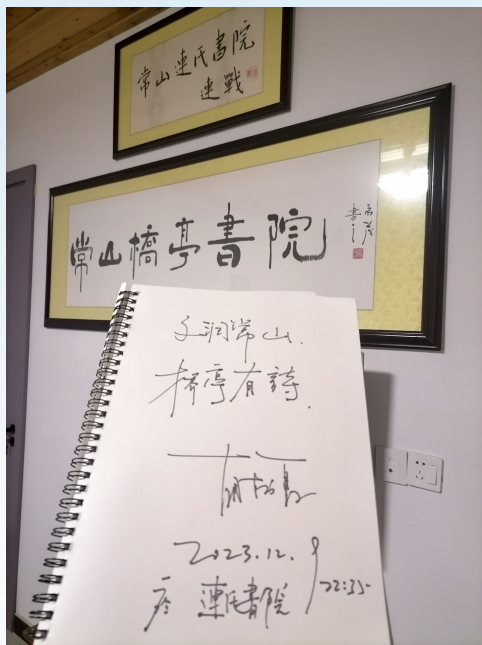 常山連氏書院
連戰
常山橋亭書院
書之
文润常山.
桥亭有詩.
2023.12.9
22:35
連氏書院